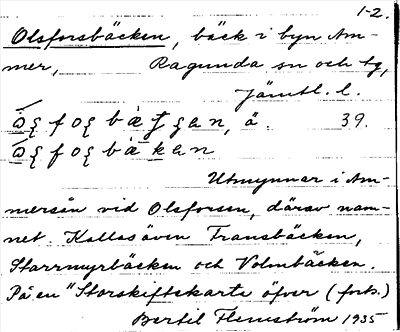 1-2.
Olsforsbäcken, bäck i byn Am-
mer, Ragunda sn och tg,
Jämtl. l.
39.
Utmynnar i Am-
mersån vid Olsforsen, därav nam-
net. Kallas även Fransbäcken,
Starrmyrbäcken och Volmbäcken.
På en "Storskiftskarta öfver (forts.)
Bertil Flemström 1935